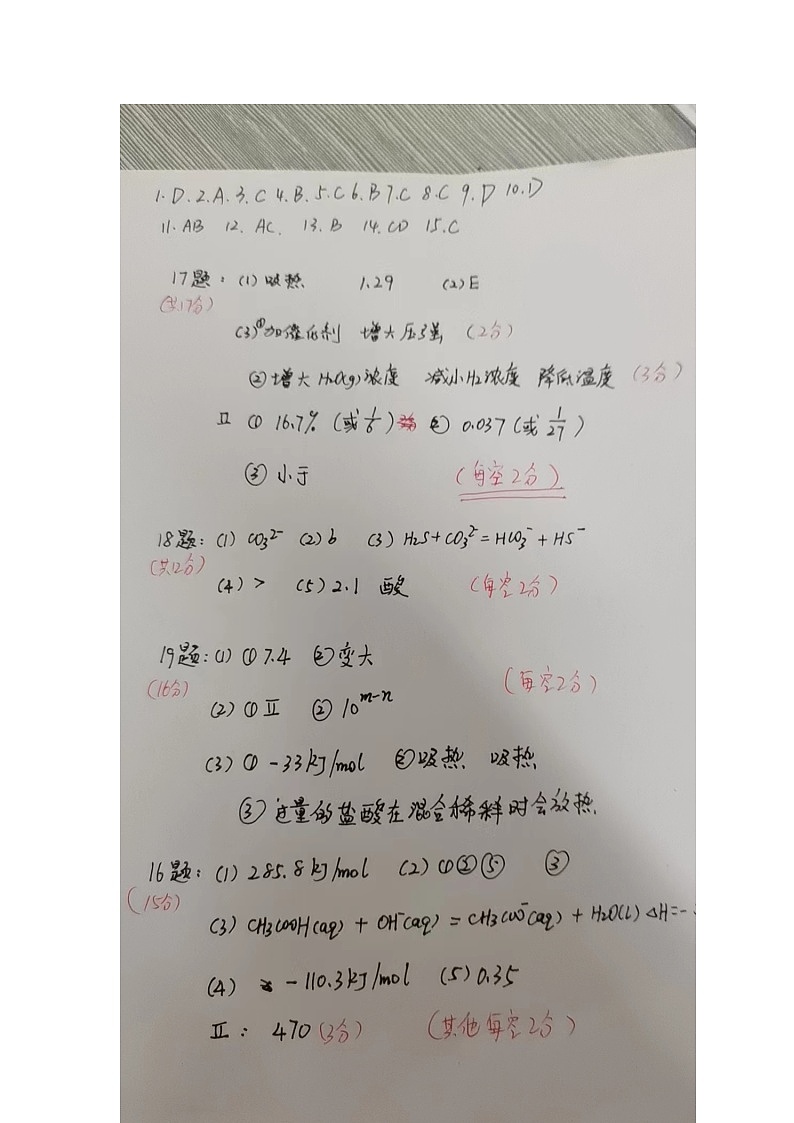 1.D.2.A.3.C 4.B.5.C 6.B 7.C 8.C 9.D 10.D
11.AB 12.AC. 13.B 14.CD 15.C
17题: (1) 吸热 1.29 (2) E
(共17分)
(3)①加催化剂 增大压强 (2分)
②增大H2O(g)浓度 减小H2浓度 降低温度 (3分)
Ⅱ ① 16.7% (或1/6) ② 0.037 (或1/27)
③ 小于 (每空2分)
18题: (1) CO3²⁻ (2) b (3) H2S+CO3²⁻=HCO3⁻+HS⁻
(共12分)
(4) > (5) 2.1 酸 (每空2分)
19题: (1) ① 7.4 ②变大
(16分) (每空2分)
(2) ① Ⅱ ② 10^(m-n)
(3) ① -33kJ/mol ②吸热 吸热
③ 过量的盐酸在混合稀释时会放热.
16题: (1) 285.8kJ/mol (2) ①②⑤ ③
(15分)
(3) CH3COOH(aq) + OH⁻(aq) = CH3COO⁻(aq) + H2O(l) △H=-
(4) -110.3kJ/mol (5) 0.35
Ⅱ: 470 (3分) (其他每空2分)